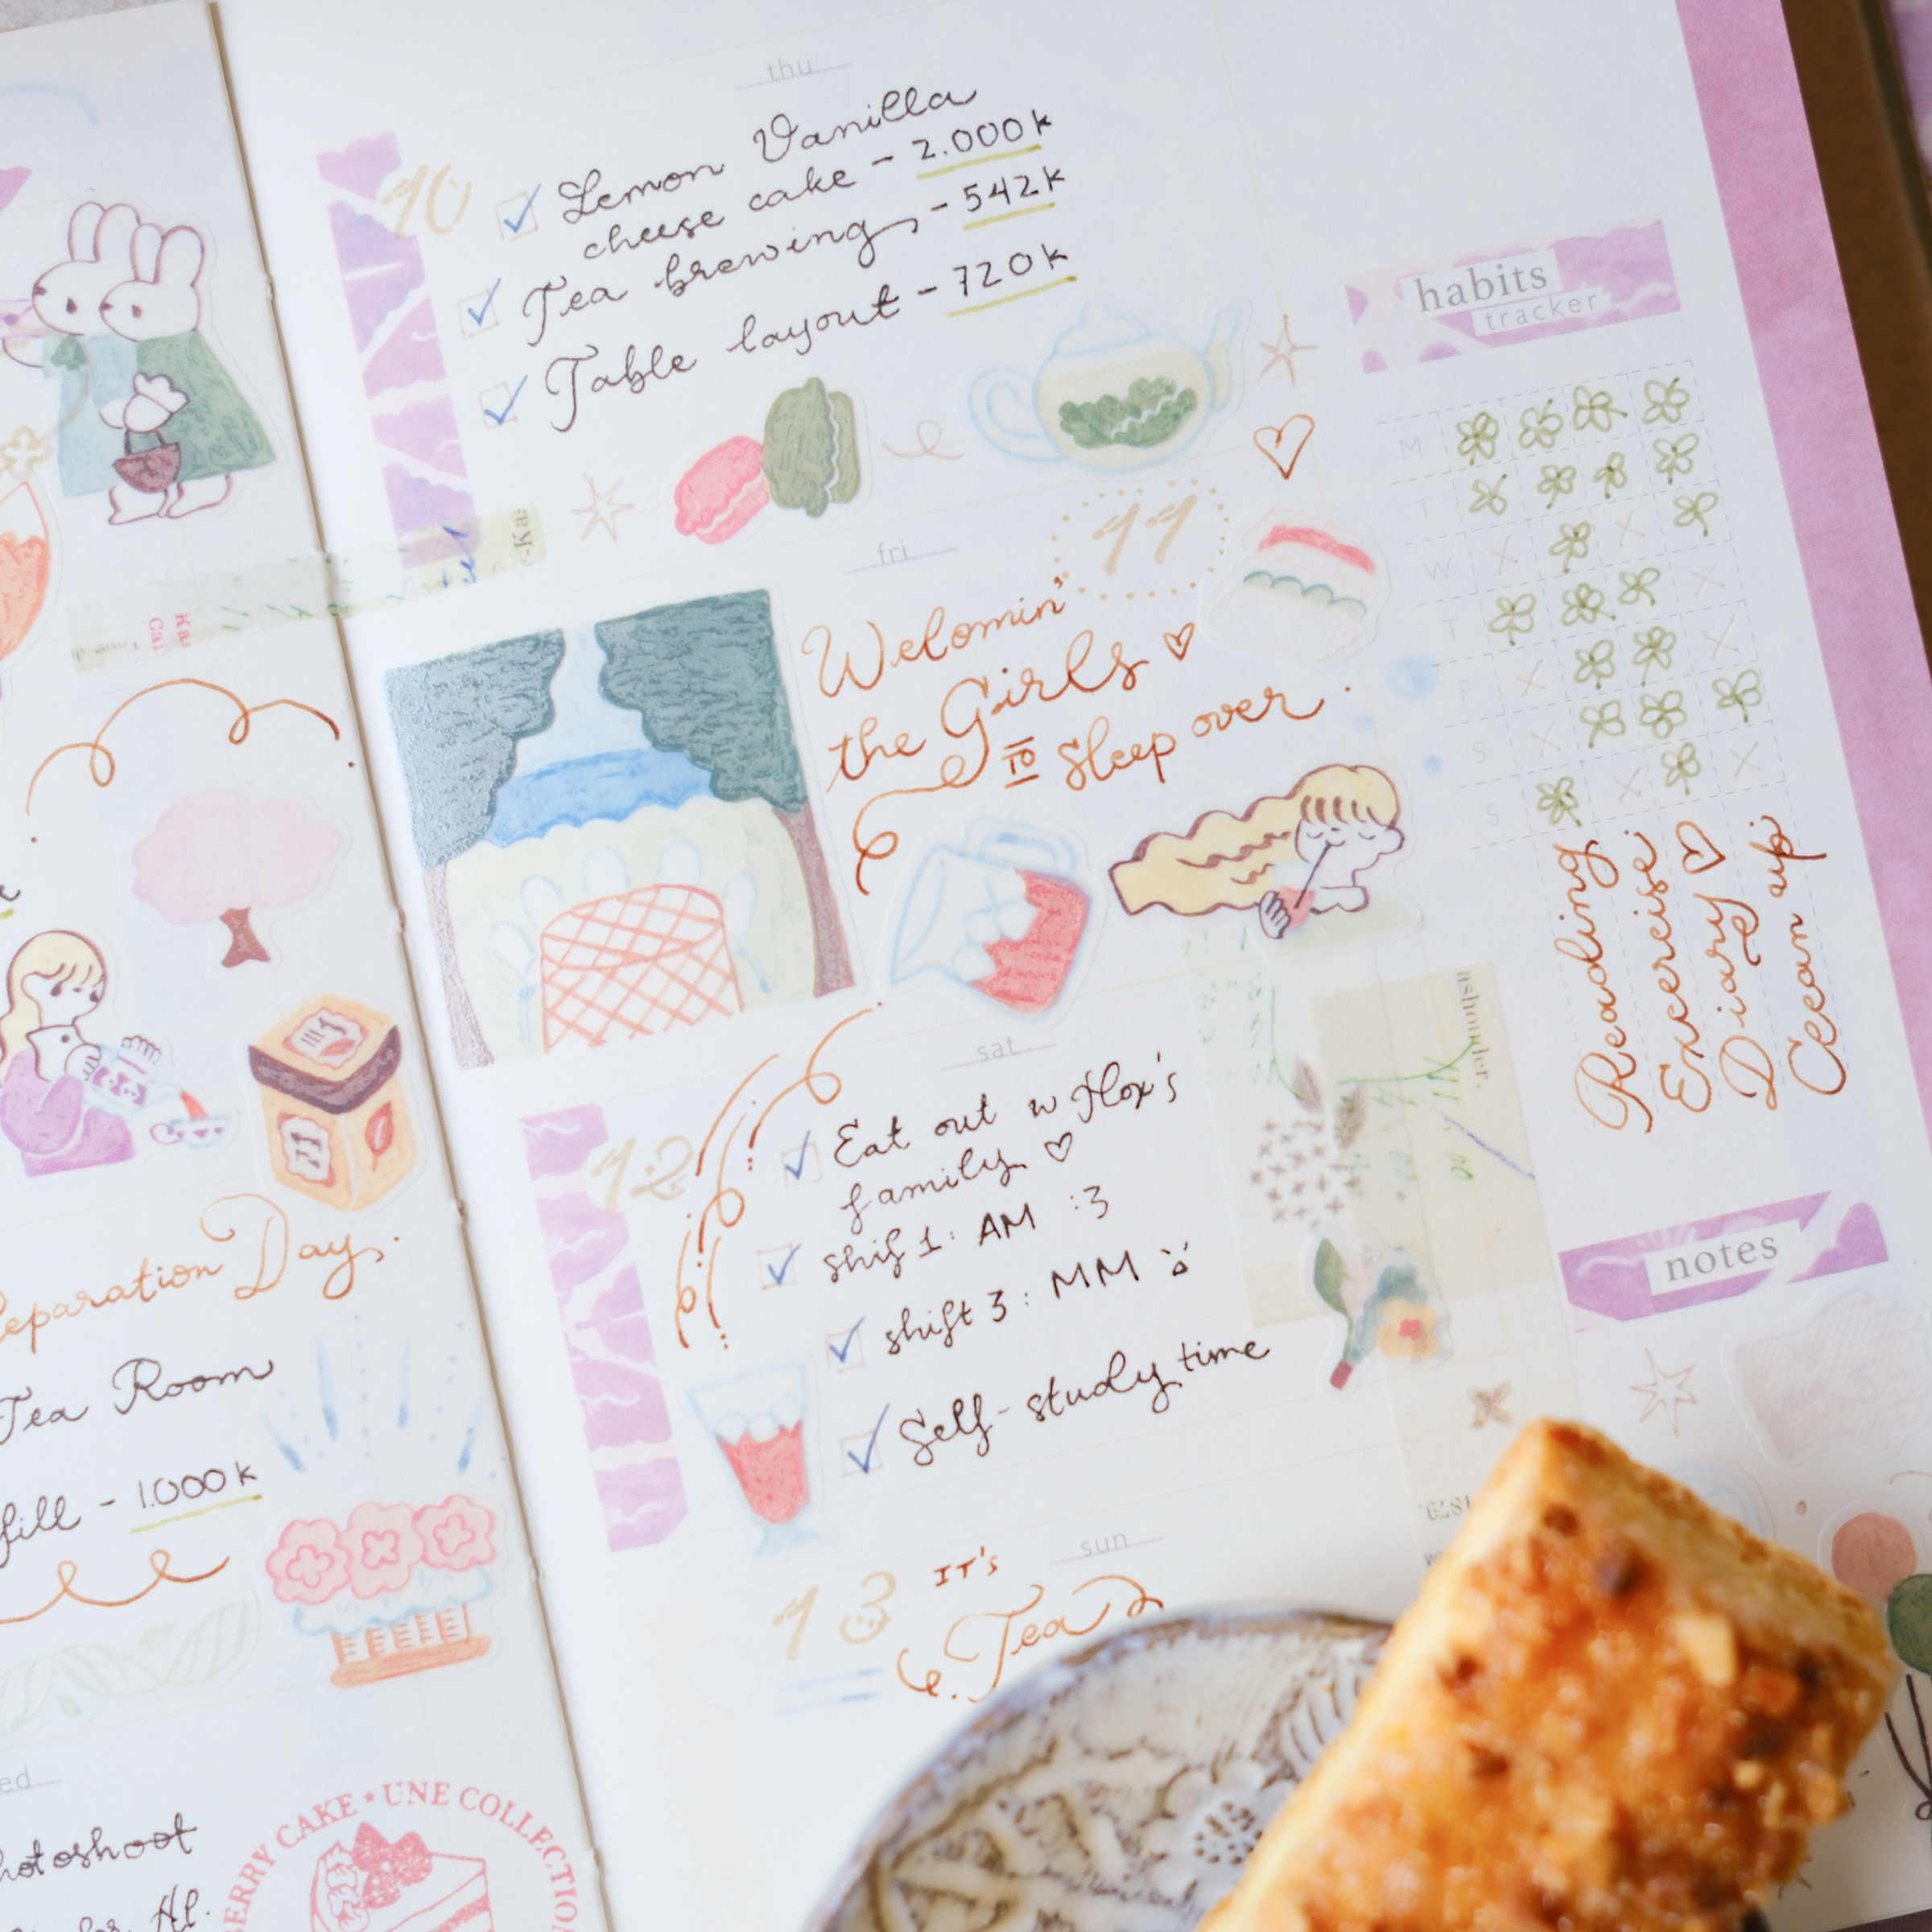 eparation Day.
Tea Room
fill - 1.000k
hotoshoot
BERRY CAKE ★ UNE COLLECTIO
thu
10
Lemon Vanilla
cheese cake - 2.000k
Tea brewing - 542k
Table layout - 720k
fri
11
Welomin'
the Girls
TO Sleep over.
sat
12
Eat out w Hox's
family
shif 1: AM :3
shift 3: MM
Self-study time
sun
13
IT'S
Tea
habits
tracker
M
T
W
T
F
S
S
Reading
Excercise
Diary
Cecan up
ashounder.
notes